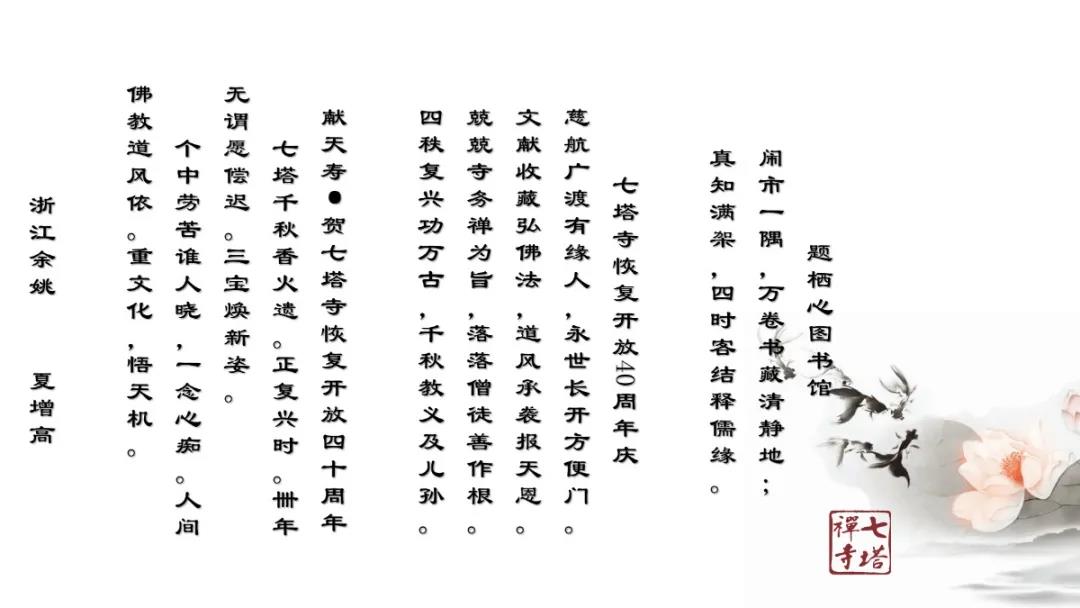 题栖心图书馆
闹市一隅,万卷书藏清静地;
真知满架,四时客结释儒缘。
七塔寺恢复开放40周年庆
慈航广渡有缘人,永世长开方便门。
文献收藏弘佛法,道风承袭报天恩。
兢兢寺务禅为旨,落落僧徒善作根。
四秩复兴功万古,千秋教义及儿孙。
献天寿●贺七塔寺恢复开放四十周年
七塔千秋香火遗。正复兴时。卌年
无谓愿偿迟。三宝焕新姿。
个中劳苦谁人晓,一念心痴。人间
佛教道风依。重文化,悟天机。
浙江余姚 夏增高
七塔
禅寺